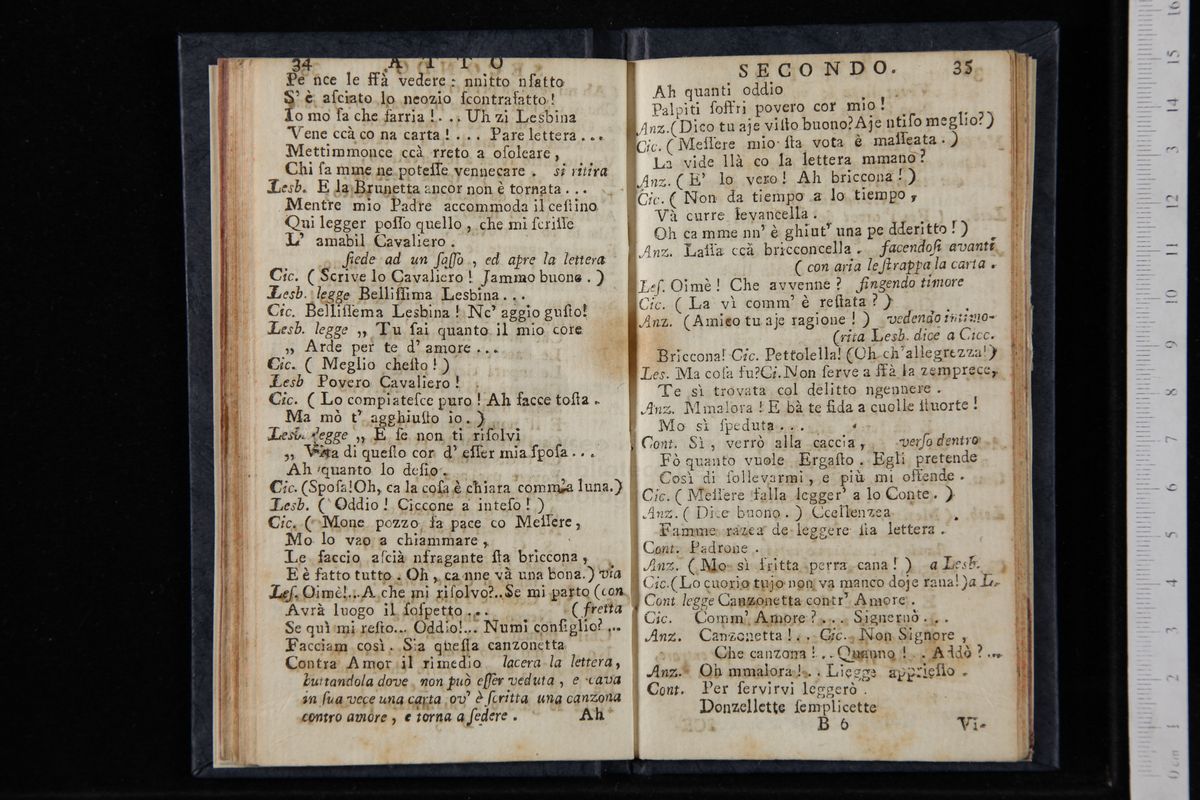 34 ATTO
Pe nce le ffà vedere : nnitto nfatto
S' è asciato lo neozio scontrafatto !
Io mo fa che sarria ! . . . Uh zi Lesbina
Vene ccà co na carta ! . . . Pare lettera . . .
Mettimmonce ccà rreto a osoleare ,
Chi sa mme ne potesse vennecare . si ritira
Lesb. E la Brunetta ancor non è tornata . . .
Mentre mio Padre accommoda il cestino
Qui legger posso quello , che mi scrisse
L' amabil Cavaliero .
siede ad un sasso , ed apre la lettera
Cic. ( Scrive lo Cavaliero ! Jammo buono . )
Lesb. legge Bellissima Lesbina . . .
Cic. Bellissema Lesbina ! Nc' aggio gusto !
Lesb. legge „ Tu sai quanto il mio core
„ Arde per te d' amore . . .
Cic. ( Meglio chesto ! )
Lesb Povero Cavaliero !
Cic. ( Lo compiatesce puro ! Ah facce tosta .
Ma mò t' agghiusto io . )
Lesb. legge „ E se non ti risolvi
„ Vita di questo cor d' esser mia sposa . . .
Ah quanto lo desio .
Cic. (Sposa!Oh, ca la cosa è chiara comm'a luna.)
Lesb. ( Oddio ! Ciccone a inteso ! )
Cic. ( Mone pozzo fa pace co Messere,
Mo lo vao a chiammare ,
Le faccio ascià nfragante sta briccona ,
E è fatto tutto . Oh , ca nne và una bona.) via
Les. Oimè!...A che mi risolvo?..Se mi parto (con
Avrà luogo il sospetto . . . ( fretta
Se quì mi resto... Oddio!... Numi consiglio? ...
Facciam così . Sia questa canzonetta
Contra Amor il rimedio lacera la lettera,
buttandola dove non può esser veduta , e cava
in sua vece una carta ov' è scritta una canzona
contro amore , e torna a sedere . Ah
SECONDO. 35
Ah quanti oddio
Palpiti soffri povero cor mio !
Anz.(Dico tu aje visto buono? Aje ntiso meglio?)
Cic. ( Messere mio sta vota è masseata . )
La vide llà co la lettera mmano ?
Anz. ( E' lo vero ! Ah briccona ! )
Cic. ( Non da tiempo a lo tiempo ,
Và curre levancella .
Oh ca mme nn' è ghiut' una pe dderitto ! )
Anz. Lassa ccà bricconcella . facendosi avanti
( con aria le strappa la carta .
Les. Oimè ! Che avvenne ? fingendo timore
Cic. ( La vì comm' è restata ? )
Anz. (Amico tu aje ragione ! ) vedendo intimo-
(rita Lesb. dice a Cicc.
Briccona! Cic. Pettolella! (Oh ch'allegrezza!)
Les. Ma cosa fu?Ci.Non serve a ffà la zemprece,
Te sì trovata col delitto ngennere .
Anz. Mmalora ! E bà te fida a cuolle stuorte !
Mo sì speduta . . .
Cont. Sì , verrò alla caccia , verso dentro
Fò quanto vuole Ergasto . Egli pretende
Così di sollevarmi , e più mi offende .
Cic. ( Messere falla legger' a lo Conte . )
Anz. ( Dice buono . ) Ccellenzea
Famme razea de leggere sta lettera .
Cont. Padrone .
Anz. ( Mo sì fritta perra cana ! ) a Lesb.
Cic.(Lo cuorio tujo non va manco doje rana!)a L.
Cont legge Canzonetta contr' Amore .
Cic. Comm' Amore ? . . . Signernò . . .
Anz. Canzonetta ! . . Cic. Non Signore ,
Che canzona ! . . Quanno ! . . Addò ? ...
Anz. Oh mmalora ! . . Liegge appriesso .
Cont. Per servirvi leggerò .
Donzellette semplicette
B 6 Vi-